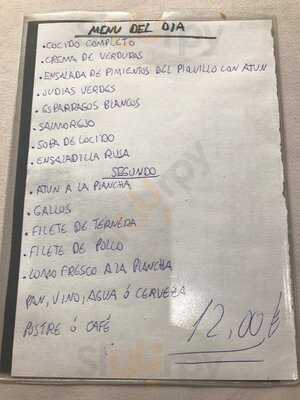 MENU DEL DIA
. COCIDO COMPLETO
. CREMA DE VERDURAS
. ENSALADA DE PIMIENTOS DEL PIQUILLO CON ATUN
. JUDIAS VERDES
. ESPARRAGOS BLANCOS
. SALMOREJO
. SOPA DE COCIDO
. ENSALADILLA RUSA
SEGUNDO
. ATUN A LA PLANCHA
. GALLOS
. FILETE DE TERNERA
. FILETE DE POLLO
. LOMO FRESCO A LA PLANCHA
PAN, VINO, AGUA Ó CERVEZA
POSTRE Ó CAFÉ
12,00€